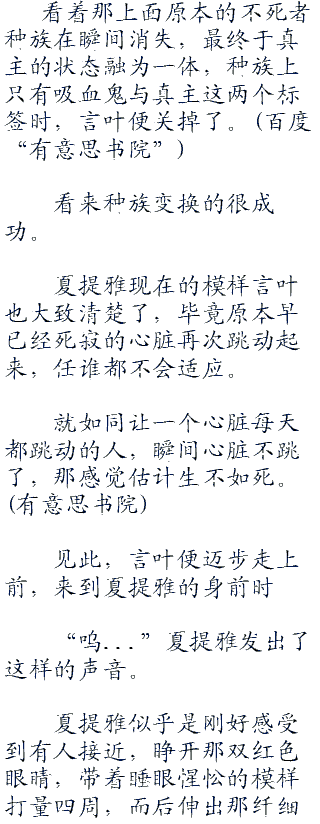 看着那上面原本的不死者
种族在瞬间消失，最终于真
主的状态融为一体，种族上
只有吸血鬼与真主这两个标
签时，言叶便关掉了。(百度
“有意思书院”)
看来种族变换的很成
功。
夏提雅现在的模样言叶
也大致清楚了，毕竟原本早
已经死寂的心脏再次跳动起
来，任谁都不会适应。
就如同让一个心脏每天
都跳动的人，瞬间心脏不跳
了，那感觉估计生不如死。
(有意思书院)
见此，言叶便迈步走上
前，来到夏提雅的身前时
“呜...”夏提雅发出了
这样的声音。
夏提雅似乎是刚好感受
到有人接近，睁开那双红色
眼睛，带着睡眼惺忪的模样
打量四周，而后伸出那纤细